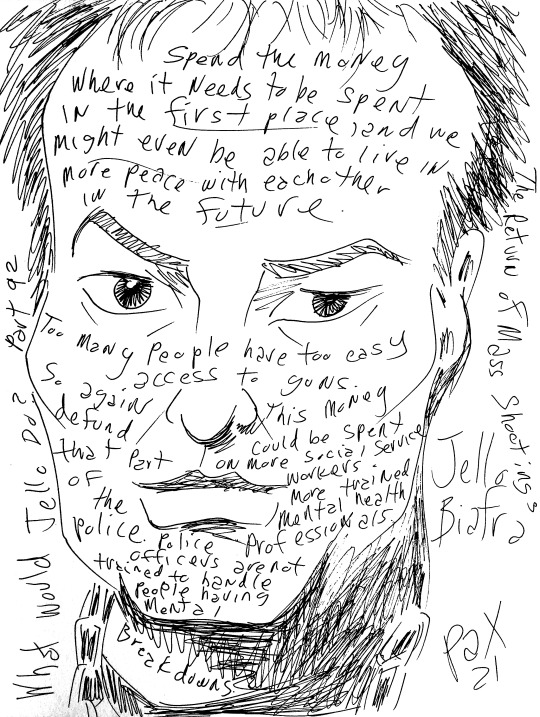 Spend the money
where it needs to be spent
in the first place, and we
might even be able to live in
more peace with eachother
in the future.
Too many people have too easy
access to guns.
So again
defund
that part
of
the
police.
This money
could be spent
on more social service
workers.
more trained
mental health
professionals.
Police
officers are not
trained to handle
people having
mental
Breakdowns
What would Jello Do? Part 92
The Return of Mass Shootings
Jello
Biafra
PaX
21